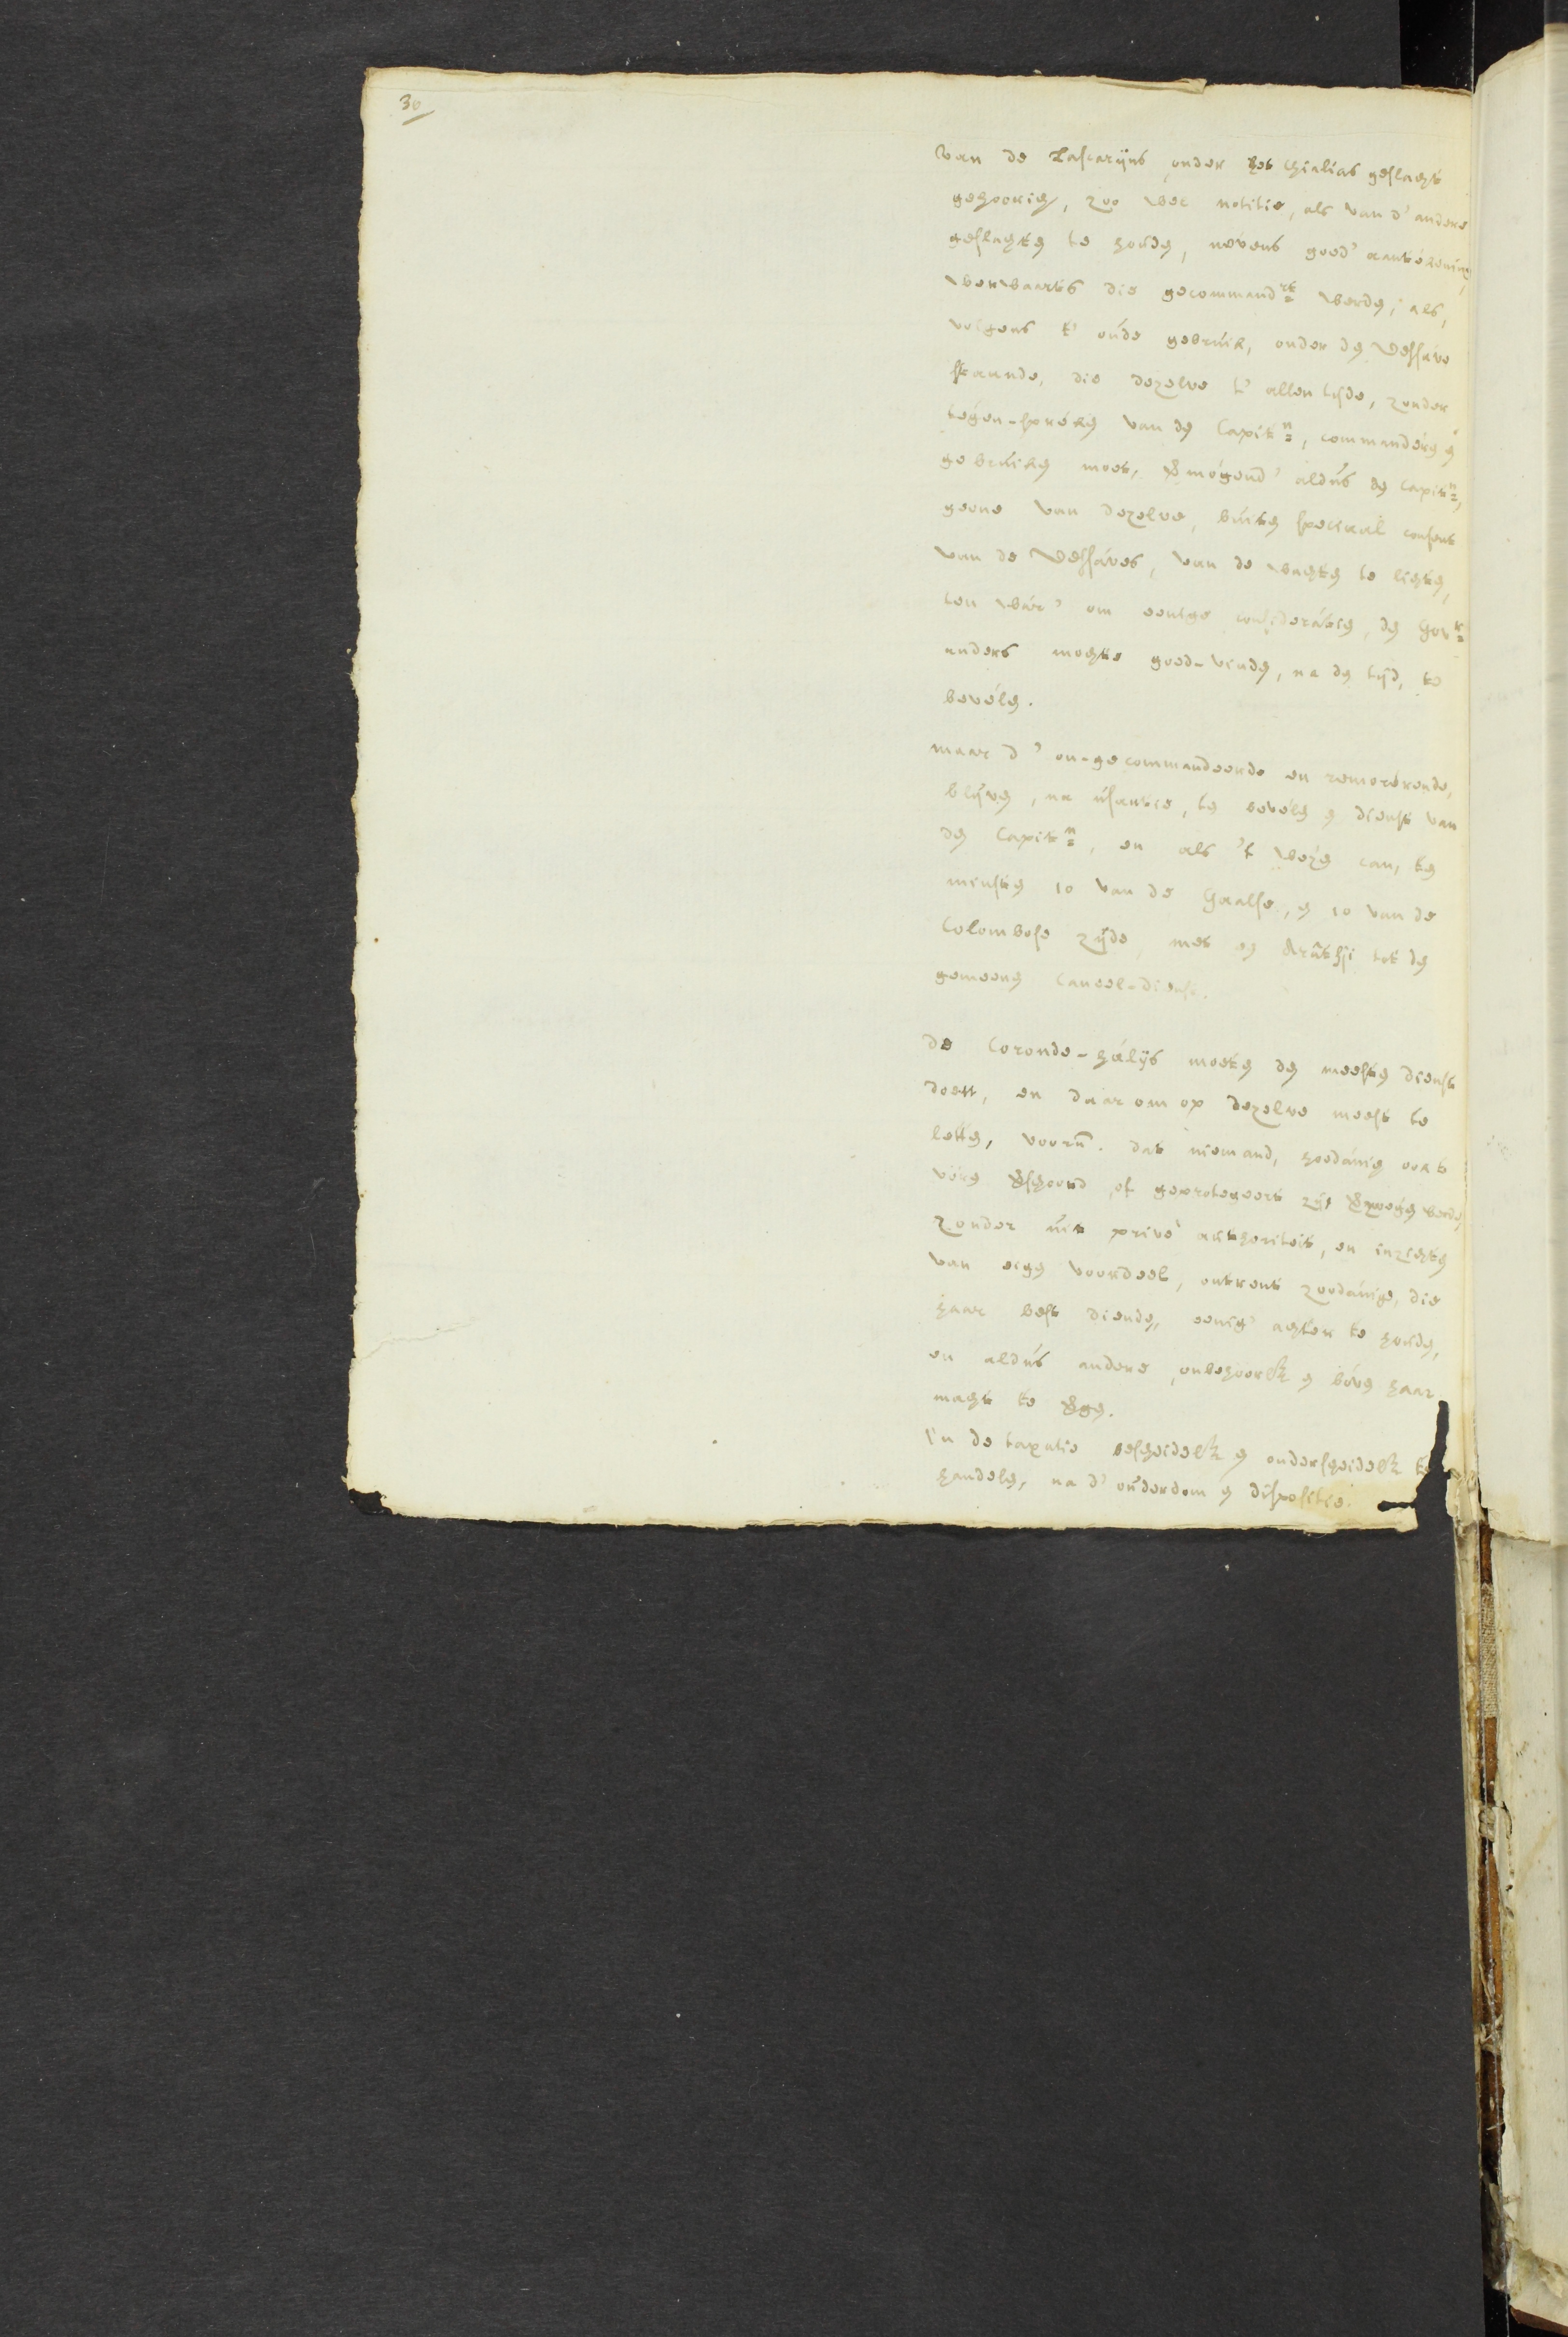 30
van de Lascarijns, onder het Chialias geslacht
gehoorig, zoo wel notitie, als van d' andere
geslachten te houden, nevens goed' aantekening,
werwaarts die gecommand:rt werden; als,
volgens t' oude gebruik, onder den Dessáve
staande, die dezelve t' allen tijde, zonder
tegen-spreken van den Capit:n, commanderen en
gebruiken moet, vermogend' aldus den Capit:n,
geene van dezelve, buiten speciaal consent
van de Dessáves, van de wachten te lichten,
ten wár' om eenige consideratien, den Gov:r
anders mochte goed-vinden, na den tijd, te
bevélen.
maar d' on-gecommandeerde en remorérende,
blijven, na usantie, ten bevélen en dienst van
den Capit:n, en als 't wezen can, ten
minsten 10 van de Gaalse, en 10 van de
Colombose zijde, met en Arâtchi tot den
gemeenen Caneel-dienst.
de Coronde-hálijs moeten den meesten dienst
doen, en daarom op dezelve meest te
letten, voorn. dat niemand, hoedánig ook te
vóren verschoond, of geprotegeert zijt werde,
zonder uit privé authoriteit, en inzichten
van eigen voordeel, ontrent zoodánige, die
haar best dienden, eenig' achter te houden,
en aldus andere, onbehoorlk en bóven haar
macht te vergen.
In de taxatie bescheidelk en onderscheidelk te
handelen, na d' ouderdom en dispositie.